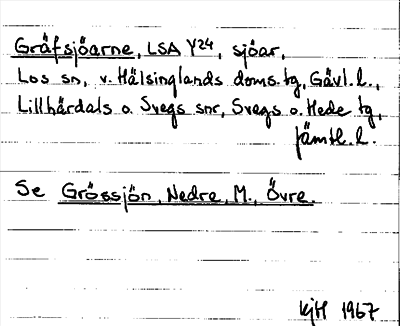 Gräfsjöarne, LSA Y24, sjöar,
Los sn, v. Hälsinglands doms. tg, Gävl. l.,
Lillhärdals o. Svegs snr, Svegs o. Hede tg,
Jämtl. l.
Se Grässjön, Nedre, M., Övre.
KjH 1967